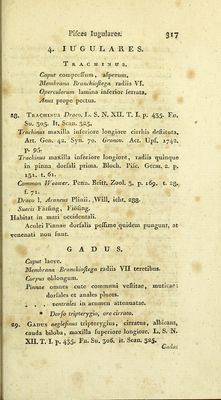 Pisces Iugulares. 317
4. IUGULARES.
TRACHINUS.
Caput compressum, asperum.
Membrana Branchiostega radiis VI.
Operculorum lamina inferior serrata.
Anus prope pectus.
28. TRACHINUS Draco. L. S. N. XII. T. I. p. 435. Fn.
Su. 305. It. Scan. 325.
Trachinus maxilla inferiore longiore cirrhis destituta,
Art. Gen. 42. Syn. 70. Gronov. Act. Upl. 1742.
p. 95.
Trachinus maxilla inferiore longiore, radiis quinque
in pinna dorsali prima. Bloch. Pisc. Germ. 2. p.
131. t. 61.
Common Weaver. Penn. Britt. Zool. 3. p. 169. t. 28,
f. 71.
Draco s. Araneus Plinii. Will, icht, 288.
Suecis Färsing, Fiärsing.
Habitat in mari occidentali.
Aculei Pinnae dorsalis pessime quidem pungunt, at
venenati non sunt.
GADUS.
Caput laeve.
Membrana Branchiostega radiis VII teretibus.
Corpus oblongum.
Pinnae omnes cute communi vestitae, muticae:
dorsales et anales plures.
. . . ventrales in acumen attenuatae.
* Dorso tripterygio, ore cirrato.
29. GADUS aeglefinus tripterygius, cirratus, albicans,
cauda biloba, maxilla superiore longiore. L. S. N.
XII. T. I. p. 435. Fn. Su. 306. it. Scan. 325.
Gadus